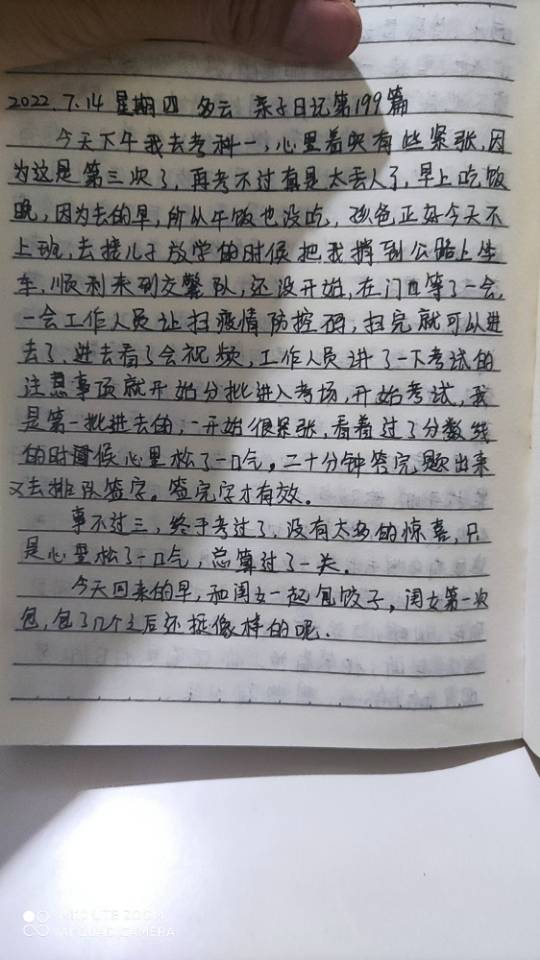 2022.7.14 星期四 多云 亲子日记第199篇
今天下午我去考科一，心里着实有些紧张，因
为这是第三次了，再考不过真是太丢人了，早上吃饭
晚，因为去的早，所以午饭也没吃，孩爸正好今天不
上班，去接儿子放学的时候把我捎到公路上坐
车，顺利来到交警队，还没开始，在门口等了一会，
一会工作人员让扫疫情防控码，扫完就可以进
去了，进去看了会视频，工作人员讲了一下考试的
注意事项就开始分批进入考场，开始考试，我
是第一批进去的，一开始很紧张，看着过了分数线
的时候心里松了一口气。二十分钟答完题出来
又去排队签字。签完字才有效。
事不过三，终于考过了，没有太多的惊喜，只
是心里松了一口气，总算过了一关。
今天回来的早，和闺女一起包饺子，闺女第一次
包，包了几个之后还挺像样的呢.
AI QUAD CAMERA